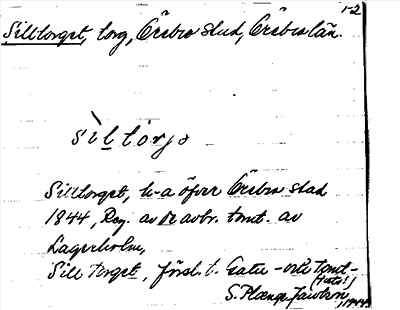 1-2
Silltorget, torg, Örebro stad, Örebro län.
sìltórjə
Silltorget, k-a öfver Örebro stad
1844, Reg. av De avbr. tomt. av
Lagerholm,
Sill Torget, försl. t. Gatu- och tomt-
S. Plænge Jacobson, 1944.